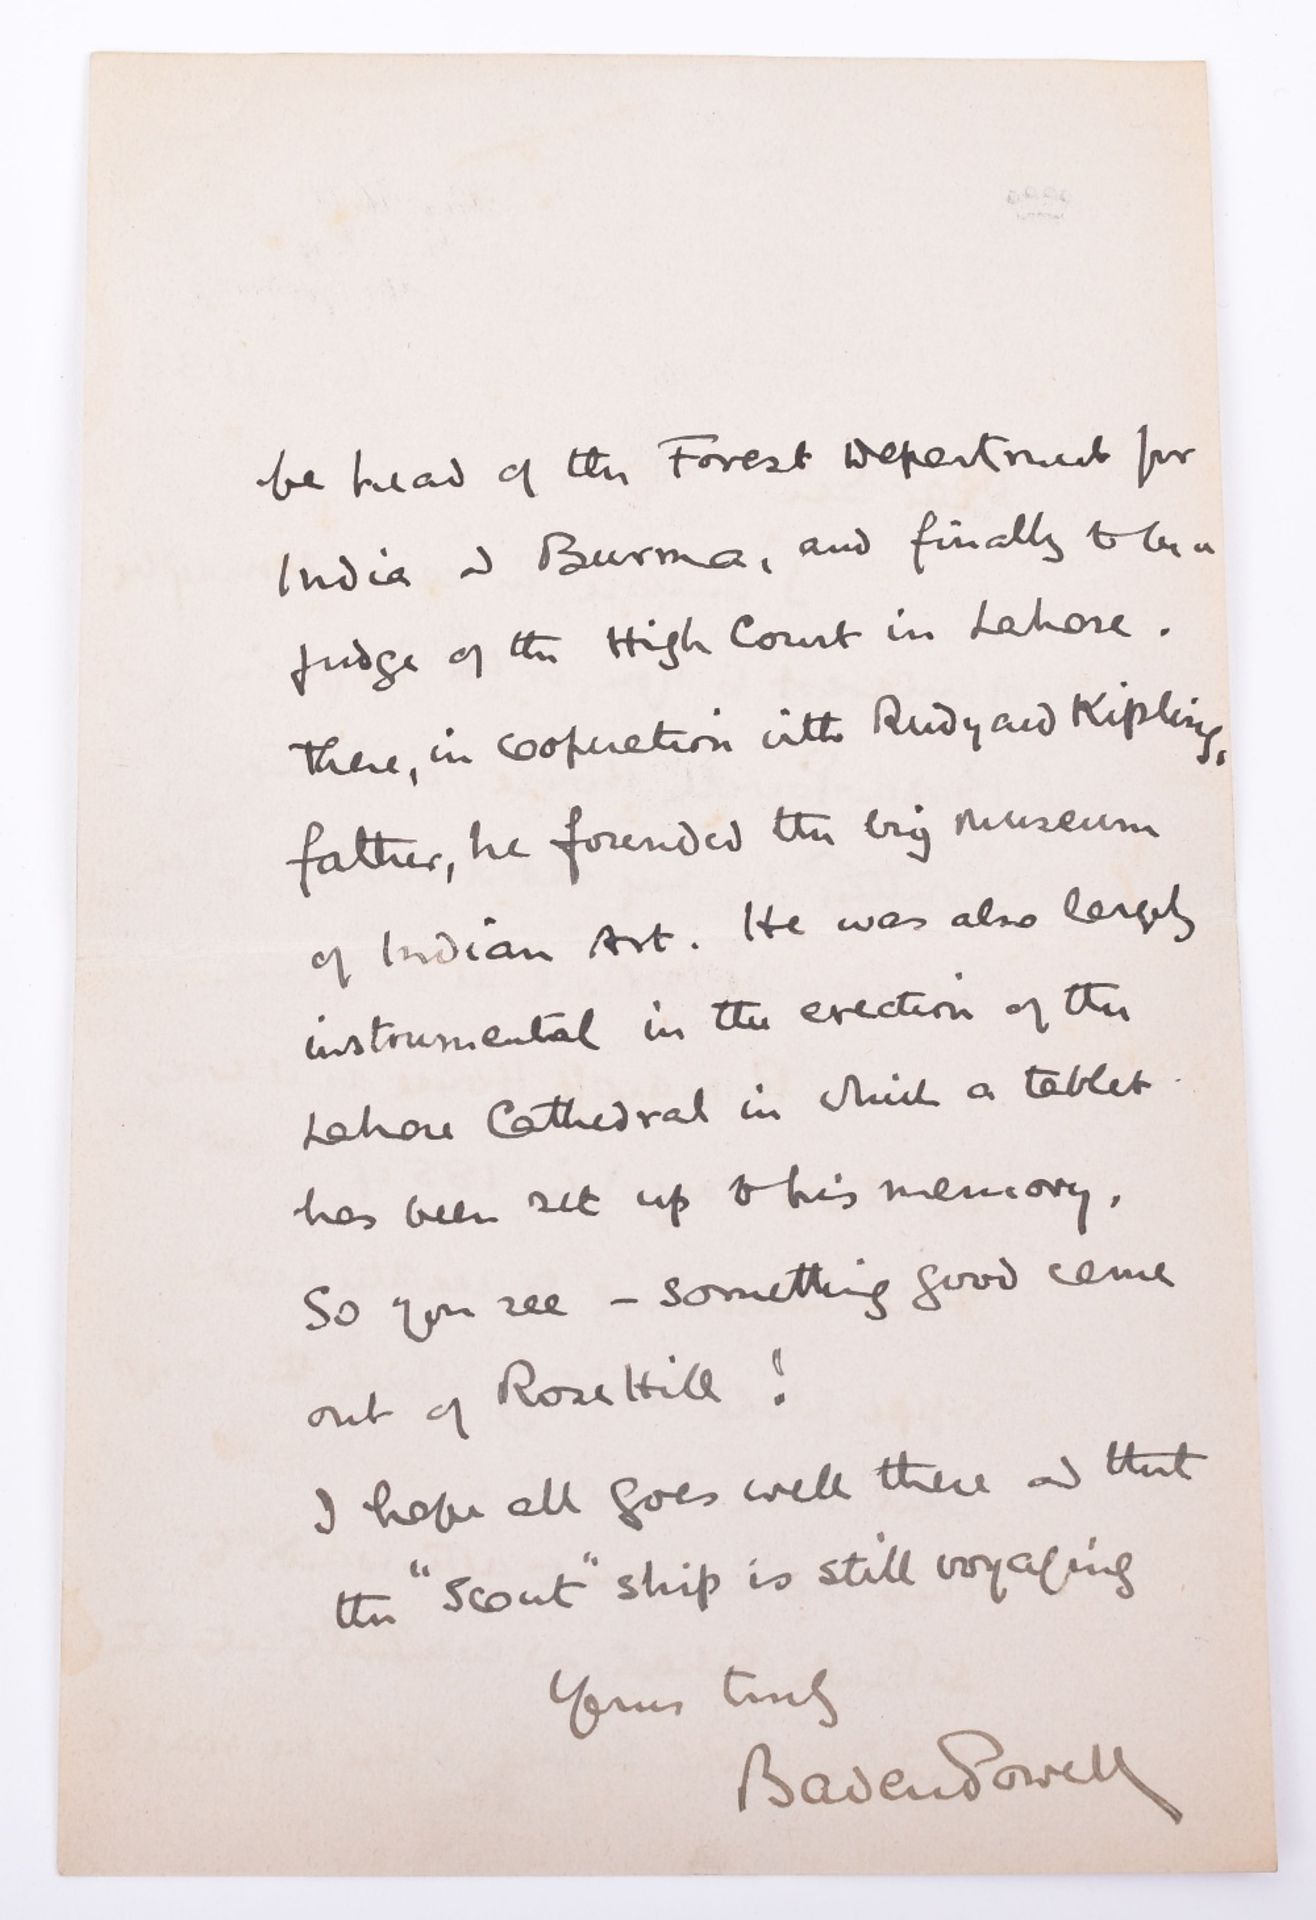 be head of the Forest Department for
India & Burma, and finally to be a
judge of the High Court in Lahore.
There, in cooperation with Rudyard Kipling,
father, he founded the big museum
of Indian Art. He was also largely
instrumental in the erection of the
Lahore Cathedral in which a tablet
has been set up to his memory.
So you see - something good came
out of Rose Hill!
I hope all goes well there & that
the "Scout" ship is still voyaging
Yours truly
Baden Powell